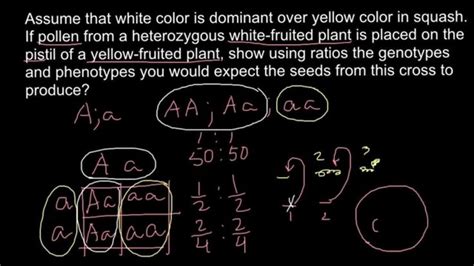 Assume that white color is dominant over yellow color in squash.
If pollen from a heterozygous white-fruited plant is placed on the
pistil of a yellow-fruited plant, show using ratios the genotypes
and phenotypes you would expect the seeds from this cross to
produce?
A;a AA; Aa, aa
1 : 1
50:50
A a
a Aa aa
a Aa aa
1/2 : 1/2
2/4 : 2/4
2 3
1 2